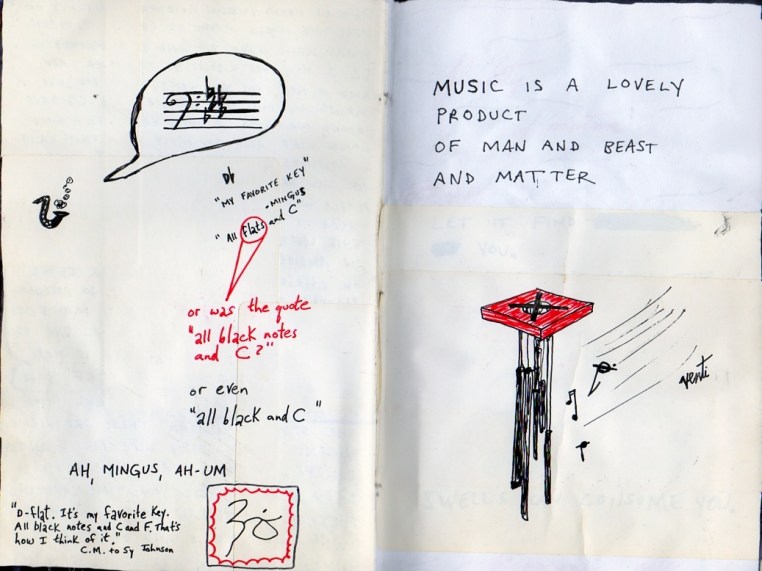 Db
"MY FAVORITE KEY"
-MINGUS
"All flats and C"
or was the quote
"all black notes
and C?"
or even
"all black and C"
AH, MINGUS, AH-UM
"D-flat. It's my favorite key.
All black notes and C and F. That's
how I think of it."
C.M. to Sy Johnson
MUSIC IS A LOVELY
PRODUCT
OF MAN AND BEAST
AND MATTER
LET IT FIND
YOU.
venti